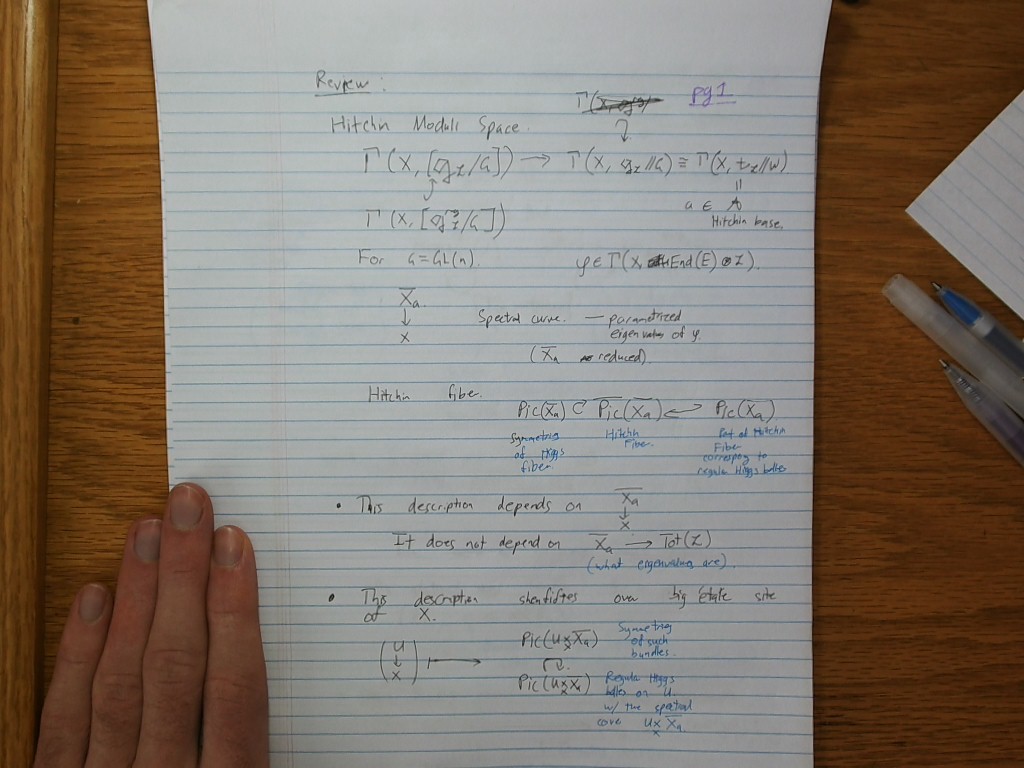 Review :
pg 1
Hitchin Moduli Space.
Γ(X, [𝔤_L/G]) → Γ(X, 𝔤_L//G) ≅ Γ(X, t_L//W)
a ∈ A
Hitchin base.
Γ(X, [𝔤_L^reg/G])
For G=GL(n). φ ∈ Γ(X, End(E) ⊗ L).
X̄_a
↓
X
Spectral curve. — parametrized
eigenvalues of φ.
(X̄_a reduced).
Hitchin fiber.
Pic(X̄_a) ⊂ P̄ic(X̄_a) ↩ Pic(X̄_a)
Symmetries
of Higgs
fiber.
Hitchin
Fiber.
Part of Hitchin
Fiber
correspong to
regular Higgs bdles
• This description depends on X̄_a
↓
X
It does not depend on X̄_a → Tot(L)
(what eigenvalues are).
• This description sheafifies over big étale site
of X.
(U → X) ↦ Pic(U ×_X X̄_a)
Symmetries
of such
bundles.
Pic(U ×_X X̄_a)
Regular Higgs
bdles on U
w/ the spectral
cover U ×_X X̄_a